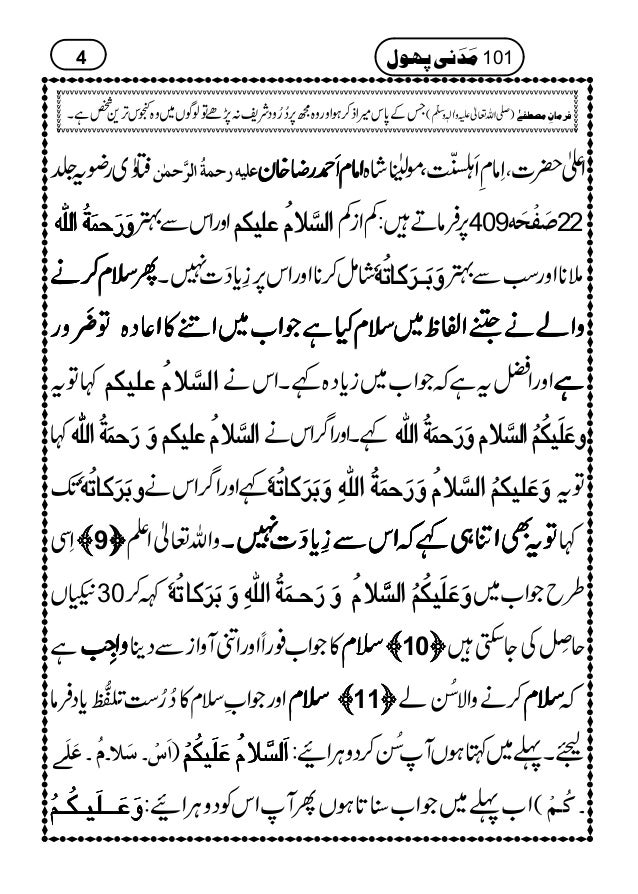 101 مَدَنی پھول
4
فرمانِ مصطفےٰ (صلی اللہ تعالیٰ علیہ والہ وسلم) جس کے پاس میرا ذکر ہوا اور وہ مجھ پر دُرُود شریف نہ پڑھے تو لوگوں میں وہ کنجوس ترین شخص ہے۔
اعلیٰ حضرت، اِمامِ اَہلسنّت، مولیٰنا شاہ امام اَحمد رضا خان علیہ رحمۃُ الرَّحمٰن فتاوٰی رضویہ جلد
22 صَفْحَہ 409 پر فرماتے ہیں: کم از کم السَّلامُ علیکم اور اس سے بہتر وَرَحمَةُ اللہ
ملانا اور سب سے بہتر وَبَرَکاتُہٗ شامل کرنا اور اس پر زِیادَت نہیں۔ پھر سلام کرنے
والے نے جتنے الفاظ میں سلام کیا ہے جواب میں اتنے کا اعادہ تو ضَرور
ہے اور افضل یہ ہے کہ جواب میں زیادہ کہے۔ اس نے السَّلامُ علیکم کہا تو یہ
وعَلَیکُمُ السَّلام وَرَحمَةُ اللہ کہے۔ اور اگر اس نے السَّلامُ علیکم وَ رَحمَةُ اللہ کہا
تو یہ وَعَلَیکمُ السَّلامُ وَرَحمَةُ اللہِ وَبَرَکاتُہٗ کہے اور اگر اس نے وبَرَکاتُہٗ تک
کہا تو یہ بھی اتنا ہی کہے کہ اس سے زِیادَت نہیں۔ واللہ تعالیٰ اعلم ﴿9﴾ اِسی
طرح جواب میں وَعَلَیکُمُ السَّلامُ وَ رَحمَةُ اللہِ وَ بَرَکاتُہٗ کہہ کر 30 نیکیاں
حاصِل کی جاسکتی ہیں ﴿10﴾ سلام کا جواب فوراً اور اتنی آواز سے دینا واجِب ہے
کہ سلام کرنے والا سُن لے ﴿11﴾ سلام اور جوابِ سلام کا دُرُست تلفُّظ یاد فرما
لیجئے۔ پہلے میں کہتا ہوں آپ سُن کر دوہرائیے: اَلسَّلامُ عَلَیکُمْ (اَسْ۔ سَلا۔مُ ۔ عَلَے
۔ کُمْ ) اب پہلے میں جواب سناتا ہوں پھر آپ اس کو دوہرائیے: وَعَـلَـیکُـمُ